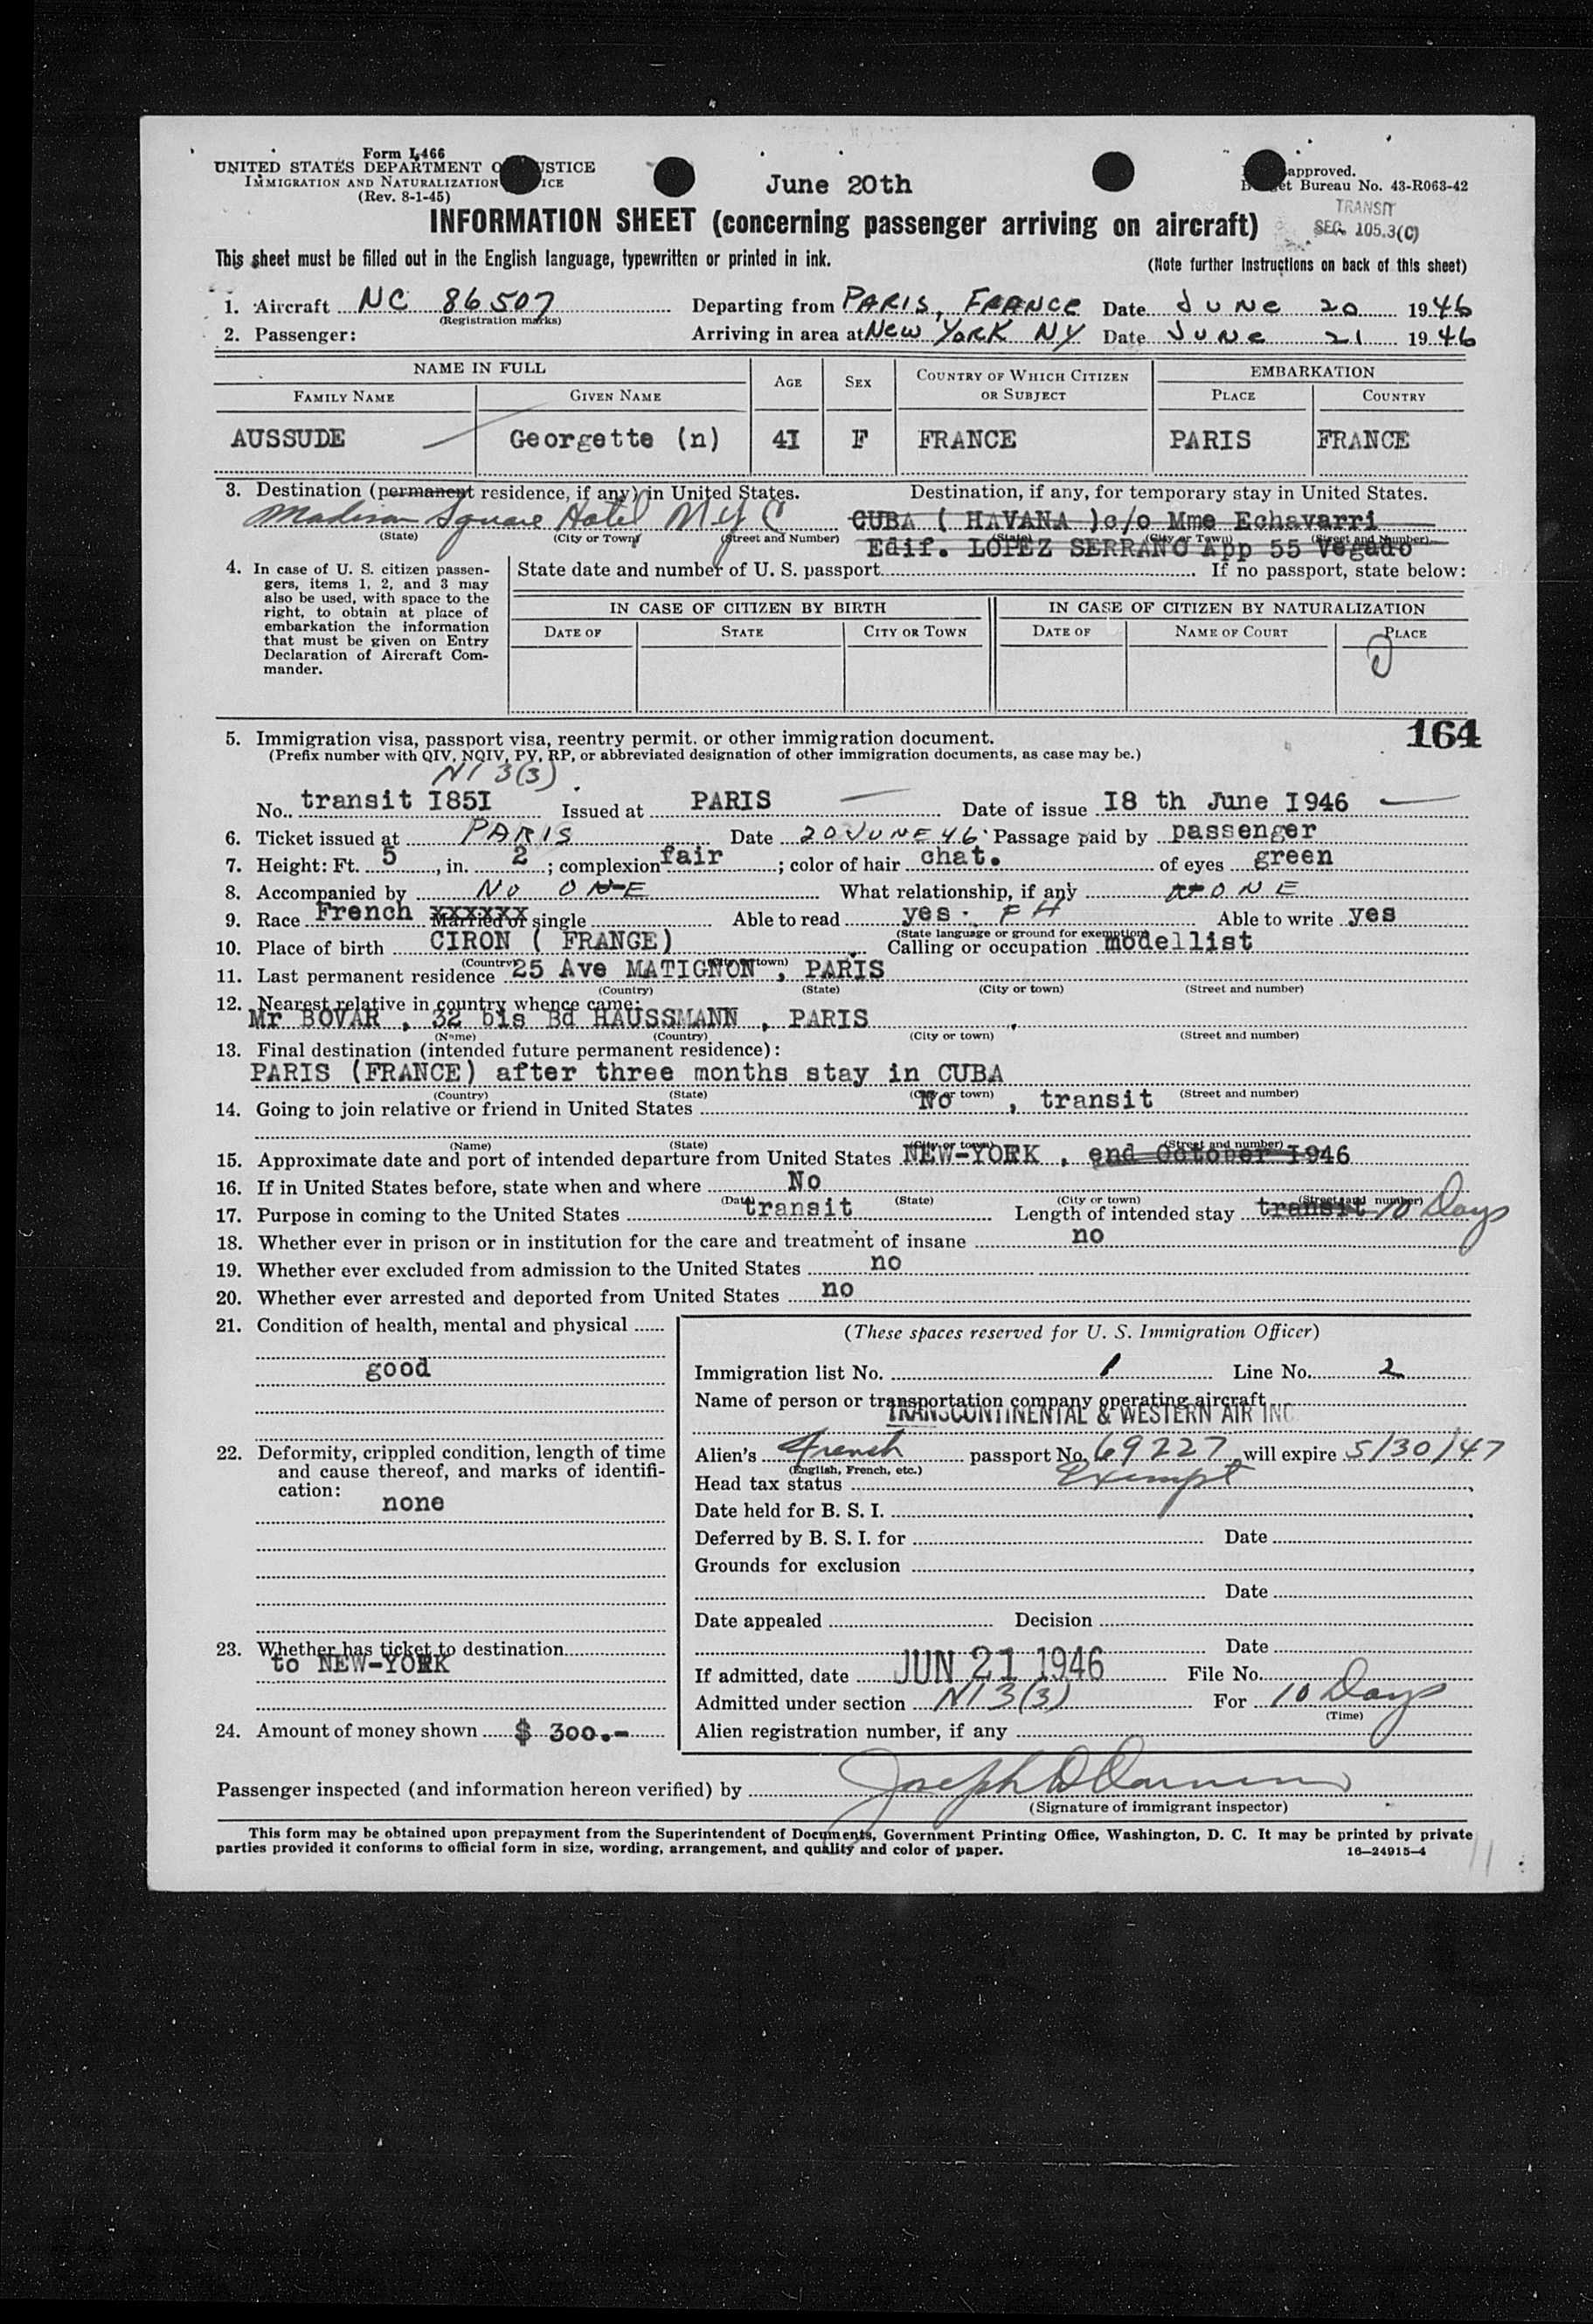 Form I-466
UNITED STATES DEPARTMENT O JUSTICE
IMMIGRATION AND NATURALIZATION ICE
(Rev. 8-1-45)
June 20th
approved.
et Bureau No. 43-R063-42
TRANSIT
SEC. 105.3(C)
INFORMATION SHEET (concerning passenger arriving on aircraft)
This sheet must be filled out in the English language, typewritten or printed in ink.
(Note further Instructions on back of this sheet)
1. Aircraft NC 86507 Departing from PARIS, FRANCE Date JUNE 20 1946
(Registration marks)
2. Passenger: Arriving in area at NEW YORK NY Date JUNE 21 1946
NAME IN FULL AGE SEX COUNTRY OF WHICH CITIZEN OR SUBJECT EMBARKATION
FAMILY NAME GIVEN NAME PLACE COUNTRY
AUSSUDE Georgette (n) 4I F FRANCE PARIS FRANCE
3. Destination (permanent residence, if any) in United States. Destination, if any, for temporary stay in United States.
Madison Square Hotel N Y C CUBA ( HAVANA )c/o Mme Echavarri
(State) (City or Town) (Street and Number) (State) (City or Town) (Street and Number)
Edif. LOPEZ SERRANO App 55 Vegado
4. In case of U. S. citizen passengers, items 1, 2, and 3 may also be used, with space to the right, to obtain at place of embarkation the information that must be given on Entry Declaration of Aircraft Commander.
State date and number of U. S. passport If no passport, state below:
IN CASE OF CITIZEN BY BIRTH IN CASE OF CITIZEN BY NATURALIZATION
DATE OF STATE CITY OR TOWN DATE OF NAME OF COURT PLACE
164
5. Immigration visa, passport visa, reentry permit, or other immigration document.
(Prefix number with QIV, NQIV, PV, RP, or abbreviated designation of other immigration documents, as case may be.)
NI 3(3)
No. transit I85I Issued at PARIS Date of issue I8 th June I946
6. Ticket issued at PARIS Date 20 JUNE 46 Passage paid by passenger
7. Height: Ft. 5, in. 2; complexion fair; color of hair chat. of eyes green
8. Accompanied by NO ONE What relationship, if any NONE
9. Race French xxxxxx Married or single Able to read yes. FH Able to write yes
(State language or ground for exemption)
10. Place of birth CIRON ( FRANCE) Calling or occupation modellist
(Country) (City or town)
11. Last permanent residence 25 Ave MATIGNON , PARIS
(Country) (State) (City or town) (Street and number)
12. Nearest relative in country whence came:
Mr BOVAR , 32 bis Bd HAUSSMANN , PARIS
(Name) (Country) (City or town) (Street and number)
13. Final destination (intended future permanent residence):
PARIS (FRANCE) after three months stay in CUBA
(Country) (State) (City or town) (Street and number)
14. Going to join relative or friend in United States No , transit
(Name) (State) (City or town) (Street and number)
15. Approximate date and port of intended departure from United States NEW-YORK , end October I946
16. If in United States before, state when and where No
(Date) (State) (City or town) (Street and number)
17. Purpose in coming to the United States transit Length of intended stay transit 10 Days
18. Whether ever in prison or in institution for the care and treatment of insane no
19. Whether ever excluded from admission to the United States no
20. Whether ever arrested and deported from United States no
21. Condition of health, mental and physical
good
22. Deformity, crippled condition, length of time and cause thereof, and marks of identification:
none
23. Whether has ticket to destination
to NEW-YORK
24. Amount of money shown $ 300.-
(These spaces reserved for U. S. Immigration Officer)
Immigration list No. 1 Line No. 2
Name of person or transportation company operating aircraft
TRANSCONTINENTAL & WESTERN AIR INC
Alien's French passport No. 69227 will expire 5/30/47
(English, French, etc.)
Head tax status Exempt
Date held for B. S. I.
Deferred by B. S. I. for Date
Grounds for exclusion
Date
Date appealed Decision
Date
If admitted, date JUN 21 1946 File No.
Admitted under section NI 3(3) For 10 Days
(Time)
Alien registration number, if any
Passenger inspected (and information hereon verified) by Joseph D
(Signature of immigrant inspector)
This form may be obtained upon prepayment from the Superintendent of Documents, Government Printing Office, Washington, D. C. It may be printed by private
parties provided it conforms to official form in size, wording, arrangement, and quality and color of paper.
16—24915-4
11